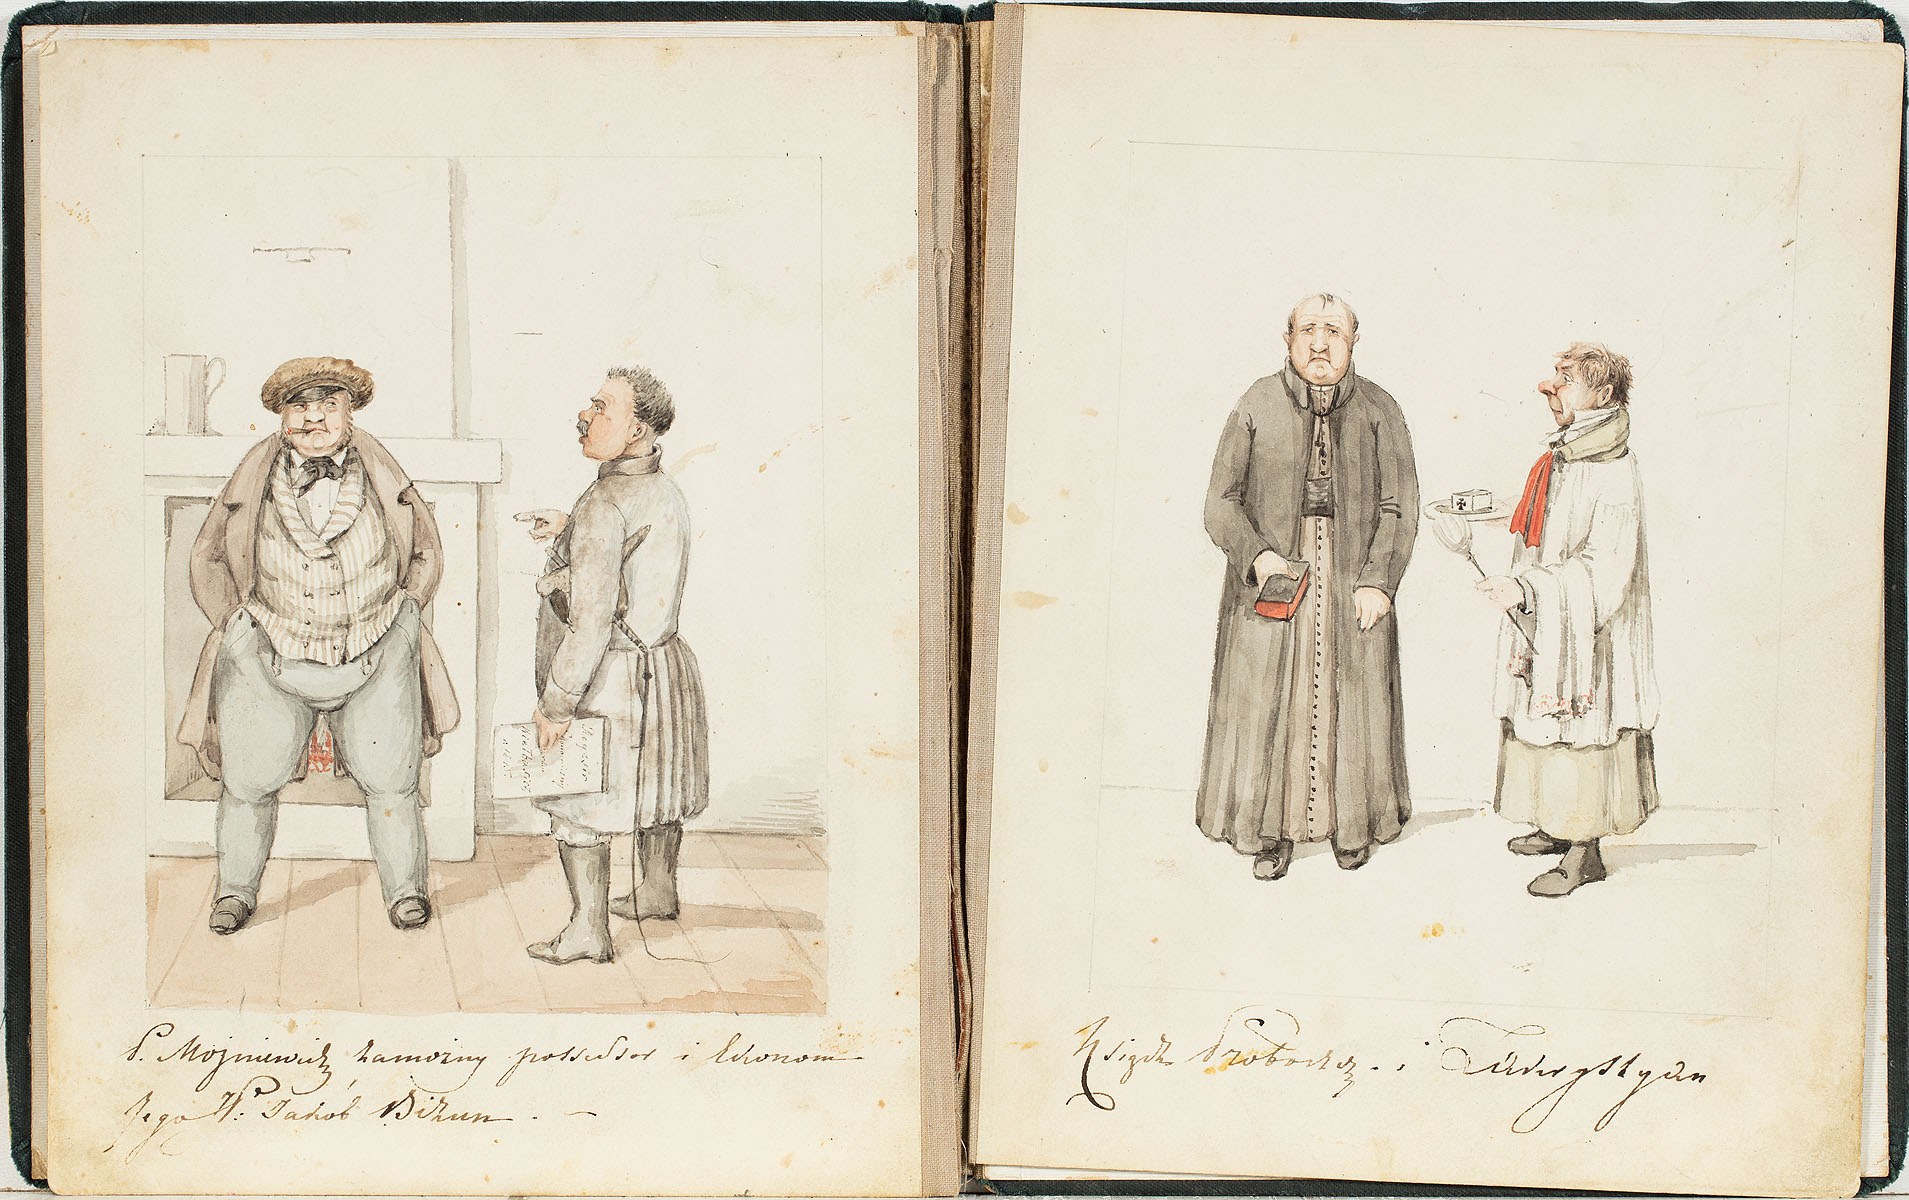 P. Mojniewicz zamożny possessor i Ekonom
Jego W. P. Jakób Bizun. —
Rejestr
Ksiądz Proboszcz. i Zakrystyan